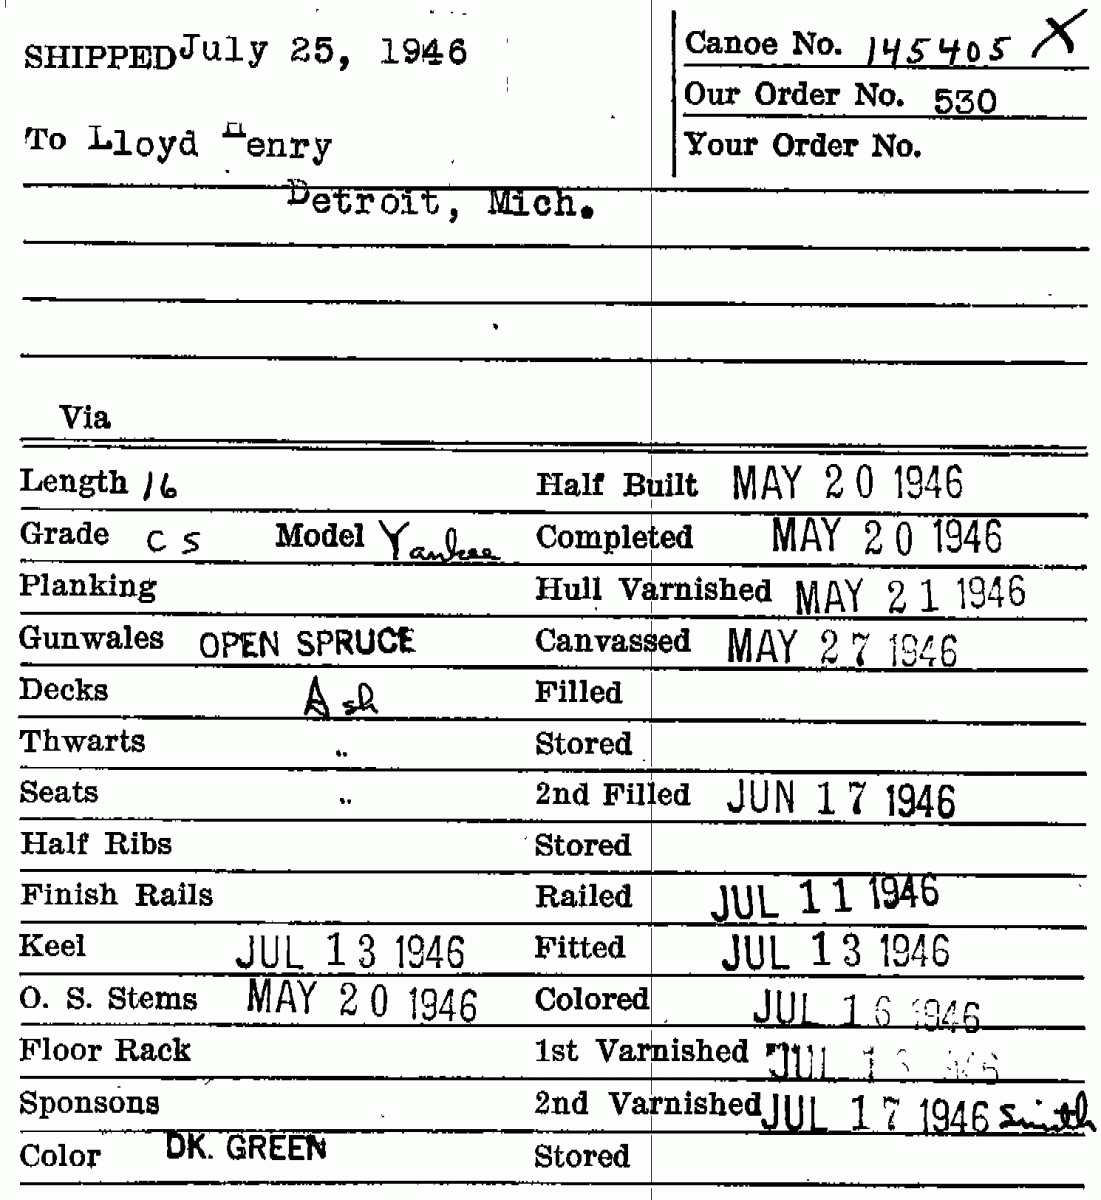 SHIPPED July 25, 1946
Canoe No. 145405 X
Our Order No. 530
To Lloyd Henry
Your Order No.
Detroit, Mich.
Via
Length 16 Half Built MAY 20 1946
Grade C S Model Yankee Completed MAY 20 1946
Planking Hull Varnished MAY 21 1946
Gunwales OPEN SPRUCE Canvassed MAY 27 1946
Decks Ash Filled
Thwarts " Stored
Seats " 2nd Filled JUN 17 1946
Half Ribs Stored
Finish Rails Railed JUL 11 1946
Keel JUL 13 1946 Fitted JUL 13 1946
O. S. Stems MAY 20 1946 Colored JUL 16 1946
Floor Rack 1st Varnished JUL
Sponsons 2nd Varnished JUL 17 1946 Smith
Color DK. GREEN Stored